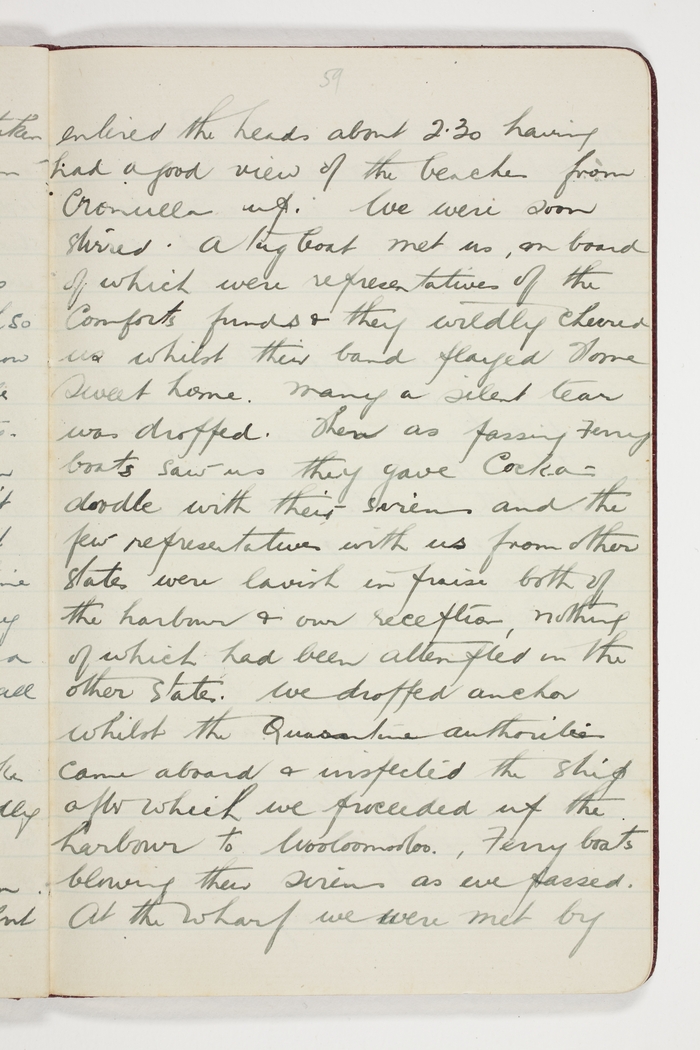 59
entired the heads about 2.30 having
had a good view of the beaches from
Cronulla up. We were soon
stirred. A tug boat met us, on board
of which were representatives of the
Comforts funds & they wildly cheered
us whilst their band played Home
Sweet home. Many a silent tear
was dropped. Then as passing Ferry
boats saw us they gave Cock-a-
doodle with their sirens and the
few representatives with us from other
States were lavish in praise both of
the harbour & our reception, nothing
of which had been attempted in the
other States. We dropped anchor
whilst the Quarantine authorities
came aboard & inspected the ship
after which we proceeded up the
harbour to Wooloomooloo., Ferry boats
blowing their sirens as we passed.
At the Wharf we were met by